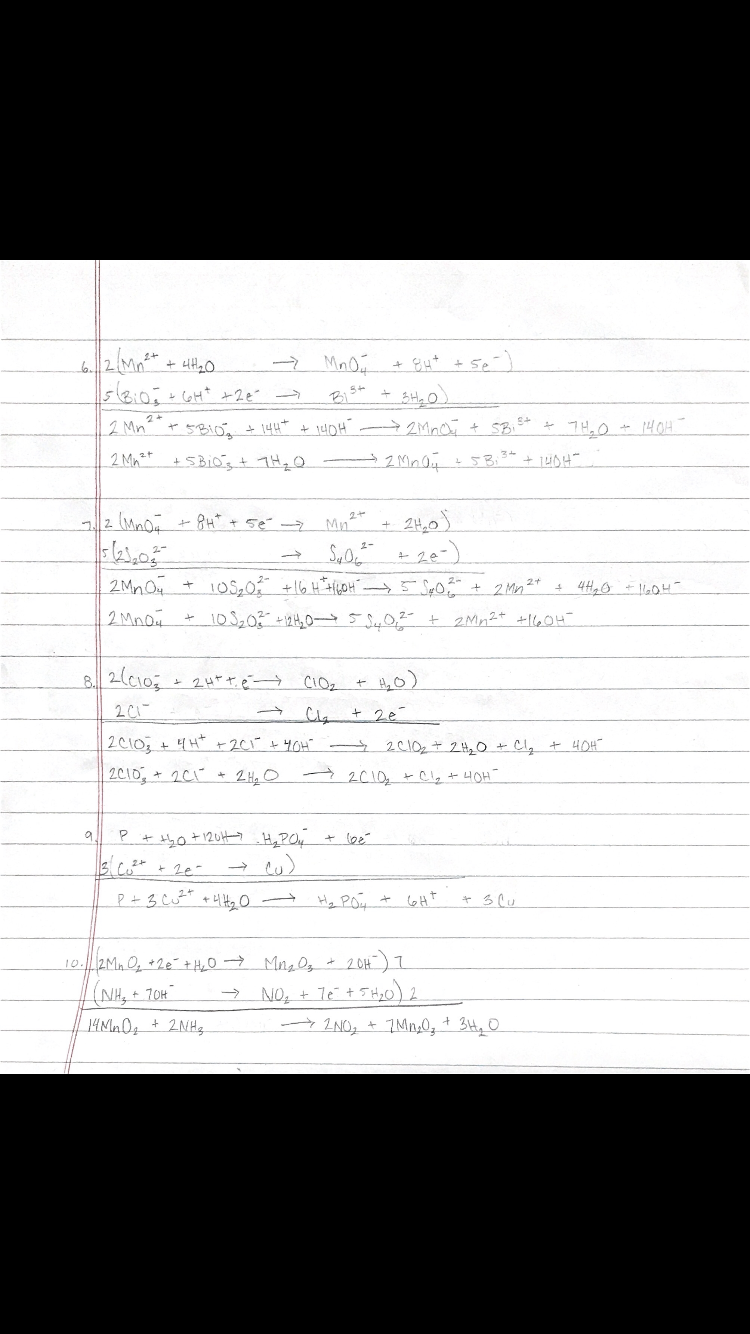 6. 2(Mn²⁺ + 4H₂O → MnO₄⁻ + 8H⁺ + 5e⁻)
5(BiO₃⁻ + 6H⁺ + 2e⁻ → Bi³⁺ + 3H₂O)
2Mn²⁺ + 5BiO₃⁻ + 14H⁺ + 14OH⁻ → 2MnO₄⁻ + 5Bi³⁺ + 7H₂O + 14OH⁻
2Mn²⁺ + 5BiO₃⁻ + 7H₂O → 2MnO₄⁻ + 5Bi³⁺ + 14OH⁻
7. 2(MnO₄⁻ + 8H⁺ + 5e⁻ → Mn²⁺ + 2H₂O)
5(2S₂O₃²⁻ → S₄O₆²⁻ + 2e⁻)
2MnO₄⁻ + 10S₂O₃²⁻ + 16H⁺ + 16OH⁻ → 5S₄O₆²⁻ + 2Mn²⁺ + 4H₂O + 16OH⁻
2MnO₄⁻ + 10S₂O₃²⁻ + 12H₂O → 5S₄O₆²⁻ + 2Mn²⁺ + 16OH⁻
8. 2(ClO₃⁻ + 2H⁺ + e⁻ → ClO₂ + H₂O)
2Cl⁻ → Cl₂ + 2e⁻
2ClO₃⁻ + 4H⁺ + 2Cl⁻ + 4OH⁻ → 2ClO₂ + 2H₂O + Cl₂ + 4OH⁻
2ClO₃⁻ + 2Cl⁻ + 2H₂O → 2ClO₂ + Cl₂ + 4OH⁻
9. P + H₂O + 12OH → H₂PO₄⁻ + 6e⁻
3(Cu²⁺ + 2e⁻ → Cu)
P + 3Cu²⁺ + 4H₂O → H₂PO₄⁻ + 6H⁺ + 3Cu
10. (2MnO₂ + 2e⁻ + H₂O → Mn₂O₃ + 2OH⁻) 7
(NH₃ + 7OH⁻ → NO₂ + 7e⁻ + 5H₂O) 2
14MnO₂ + 2NH₃ → 2NO₂ + 7Mn₂O₃ + 3H₂O